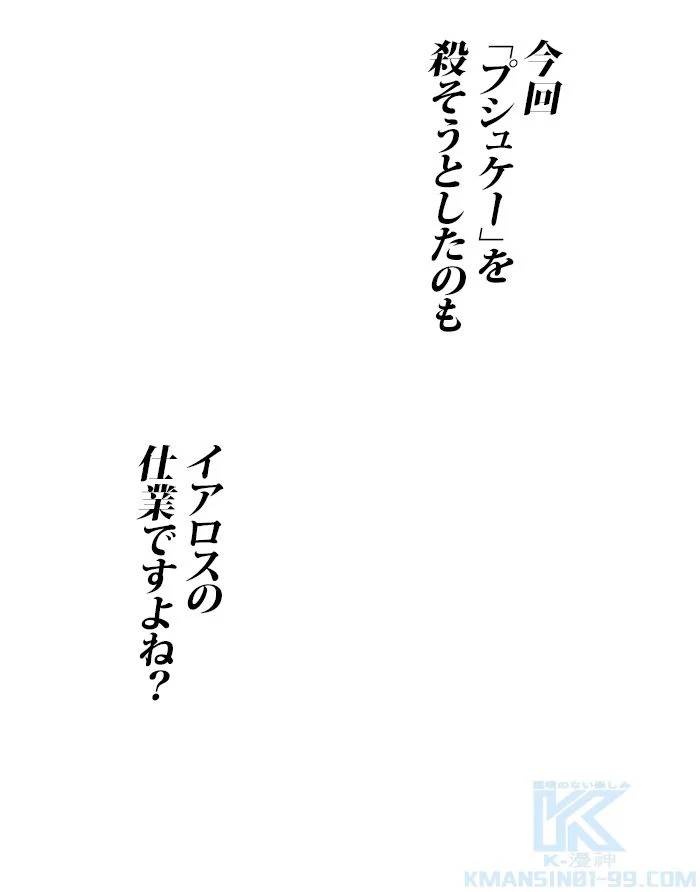 今回
「プシュケー」を
殺そうとしたのも
イアロスの
仕業ですよね?
K-漫神
KMANSIN01-99.COM